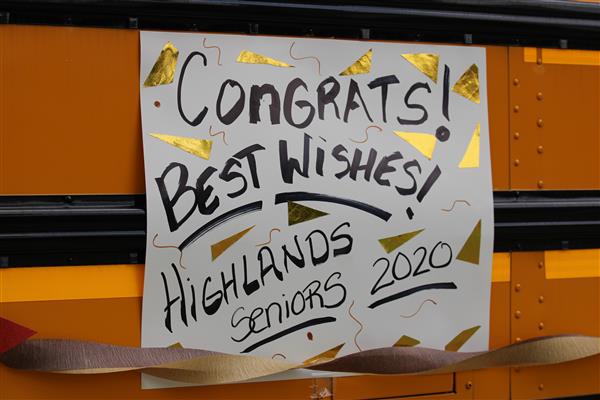 Congrats!
Best Wishes!
Highlands
Seniors 2020